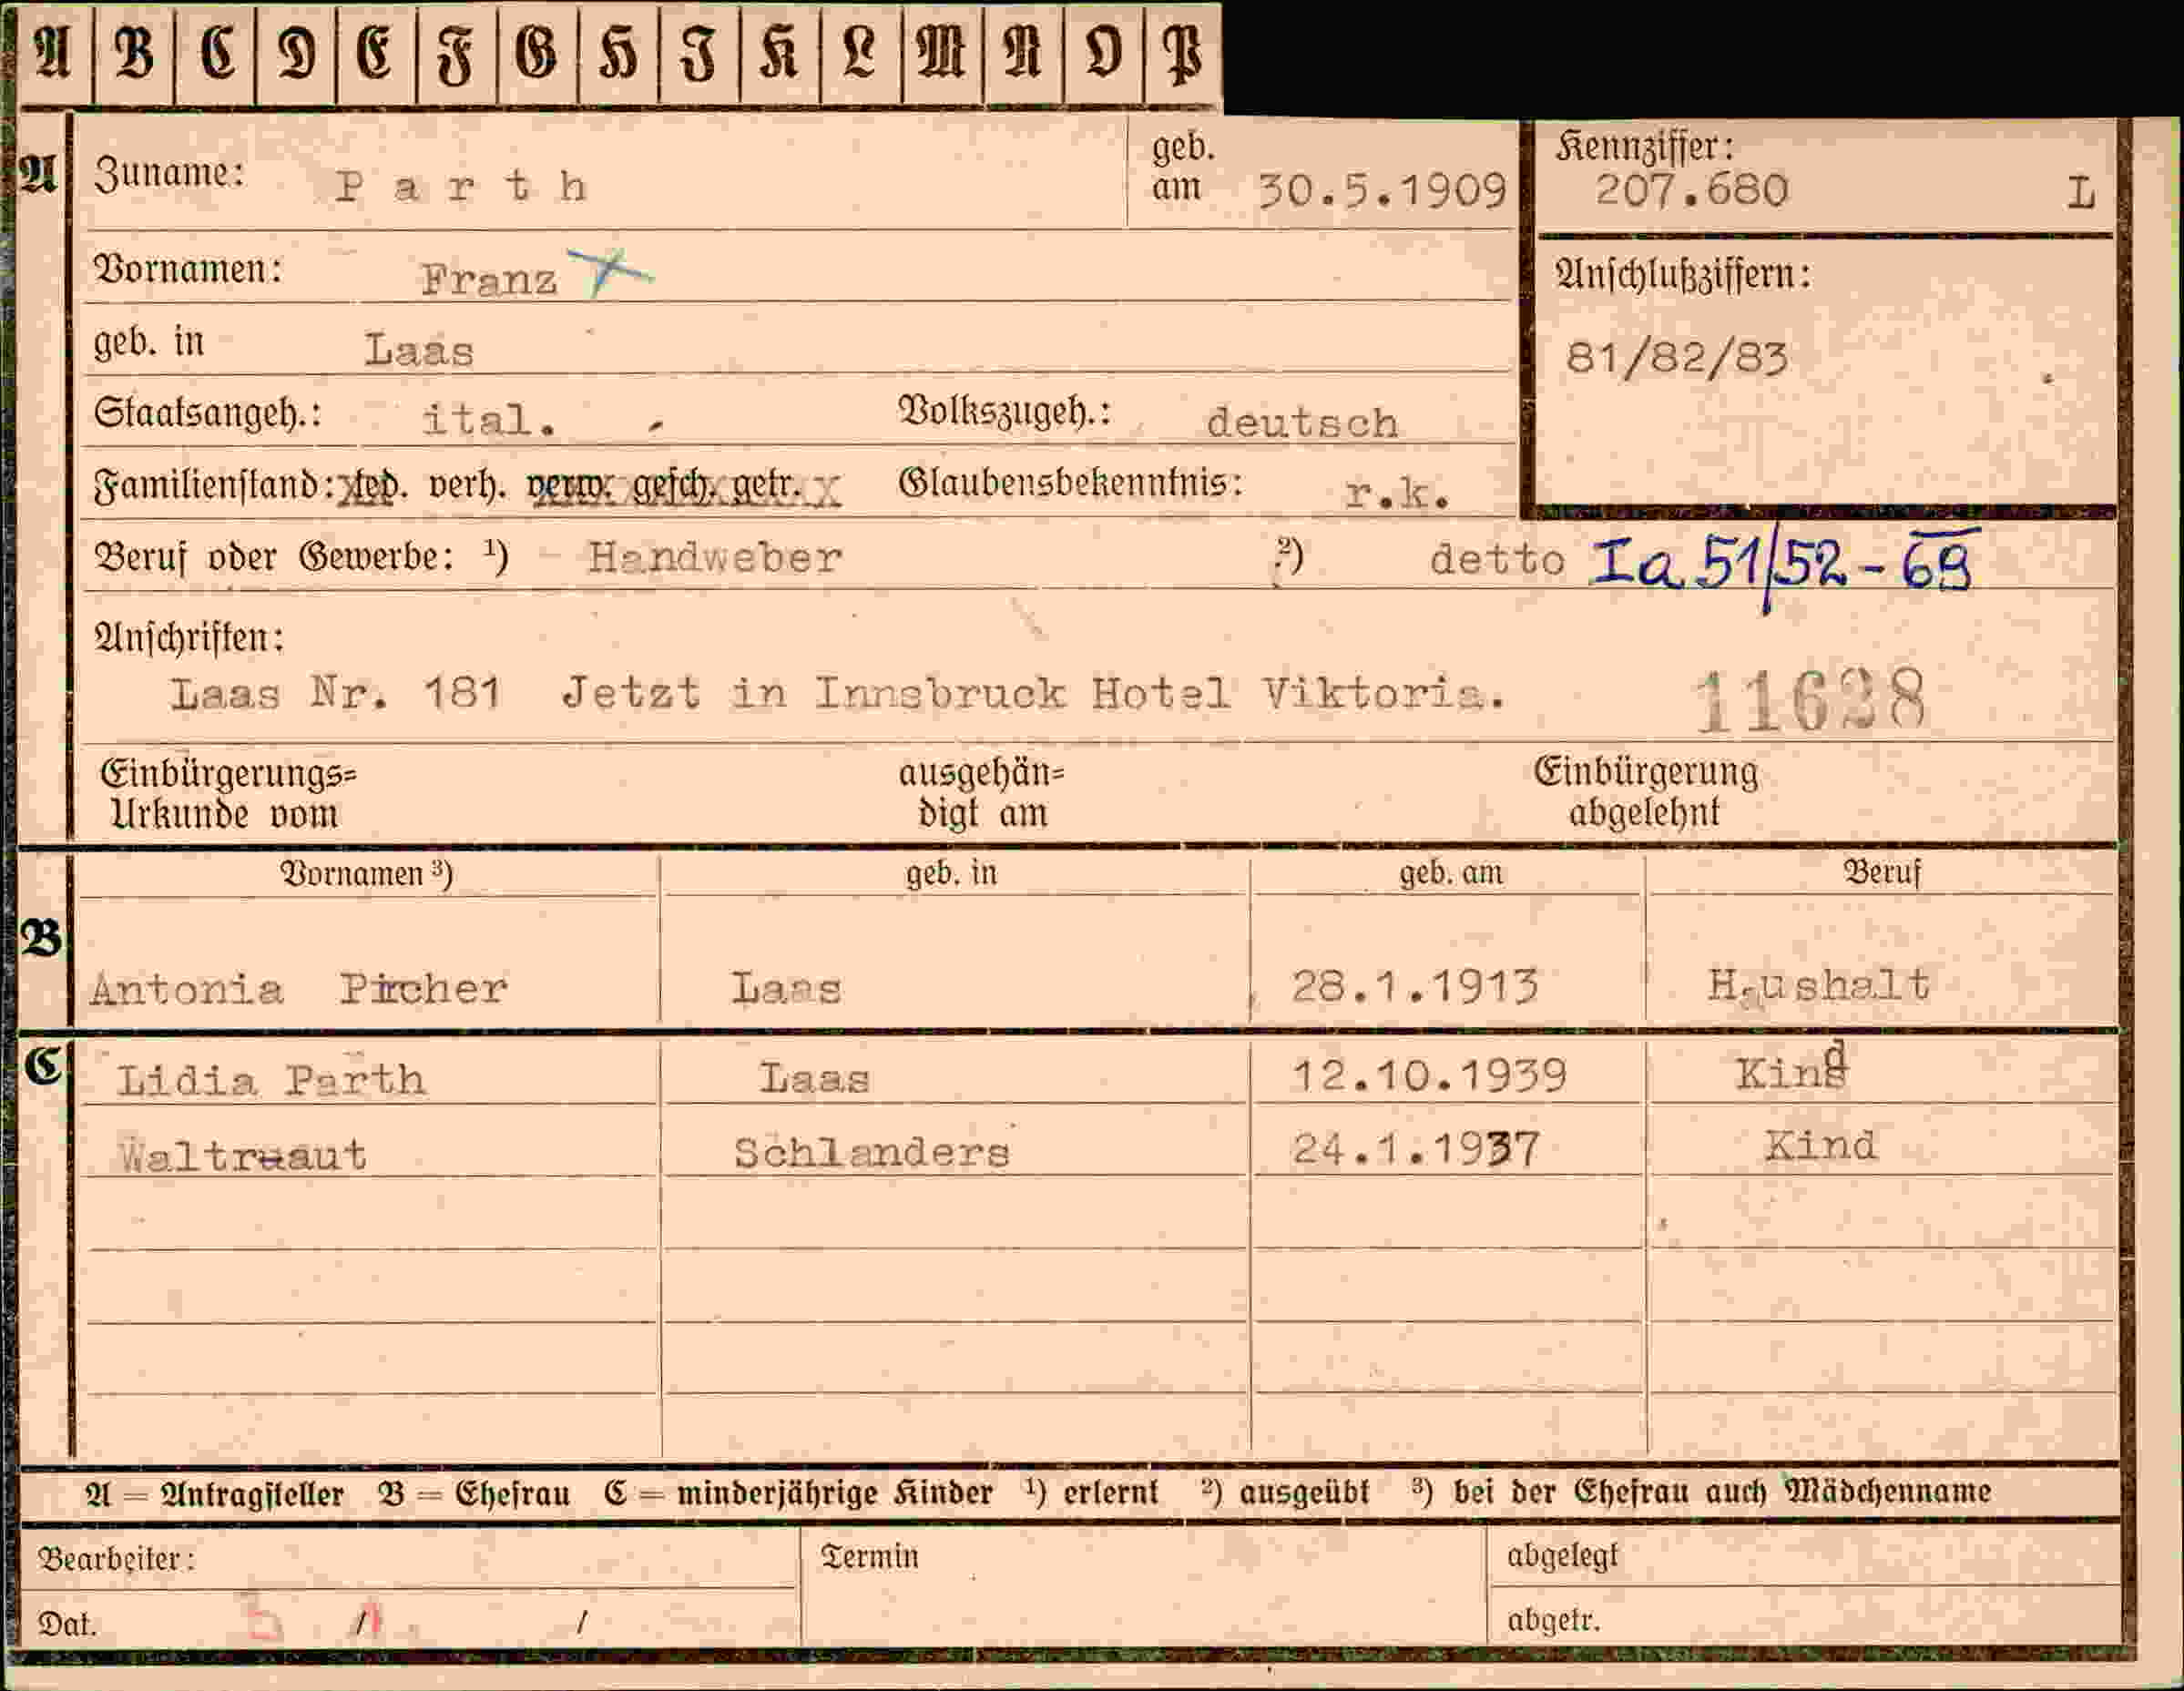 A B C D E F G H I K L M N O P
A Zuname: Parth geb. am 30.5.1909 Kennziffer: 207.680 L
Vornamen: Franz Anschlußziffern:
geb. in Laas 81/82/83
Staatsangeh.: ital. Volkszugeh.: deutsch
Familienstand: led. verh. verw. gesch. getr. Glaubensbekenntnis: r.k.
Beruf oder Gewerbe: ¹) Handweber ²) detto Ia 51/52-69
Anschriften:
Laas Nr. 181 Jetzt in Innsbruck Hotel Viktoria. 11638
Einbürgerungs= ausgehän= Einbürgerung
Urkunde vom digt am abgelehnt
Vornamen ³) geb. in geb. am Beruf
B Antonia Pircher Laas 28.1.1913 Haushalt
C Lidia Parth Laas 12.10.1939 Kind
Waltraut Schlanders 24.1.1937 Kind
A = Antragsteller B = Ehefrau C = minderjährige Kinder ¹) erlernt ²) ausgeübt ³) bei der Ehefrau auch Mädchenname
Bearbeiter: Termin abgelegt
Dat. / / abgetr.